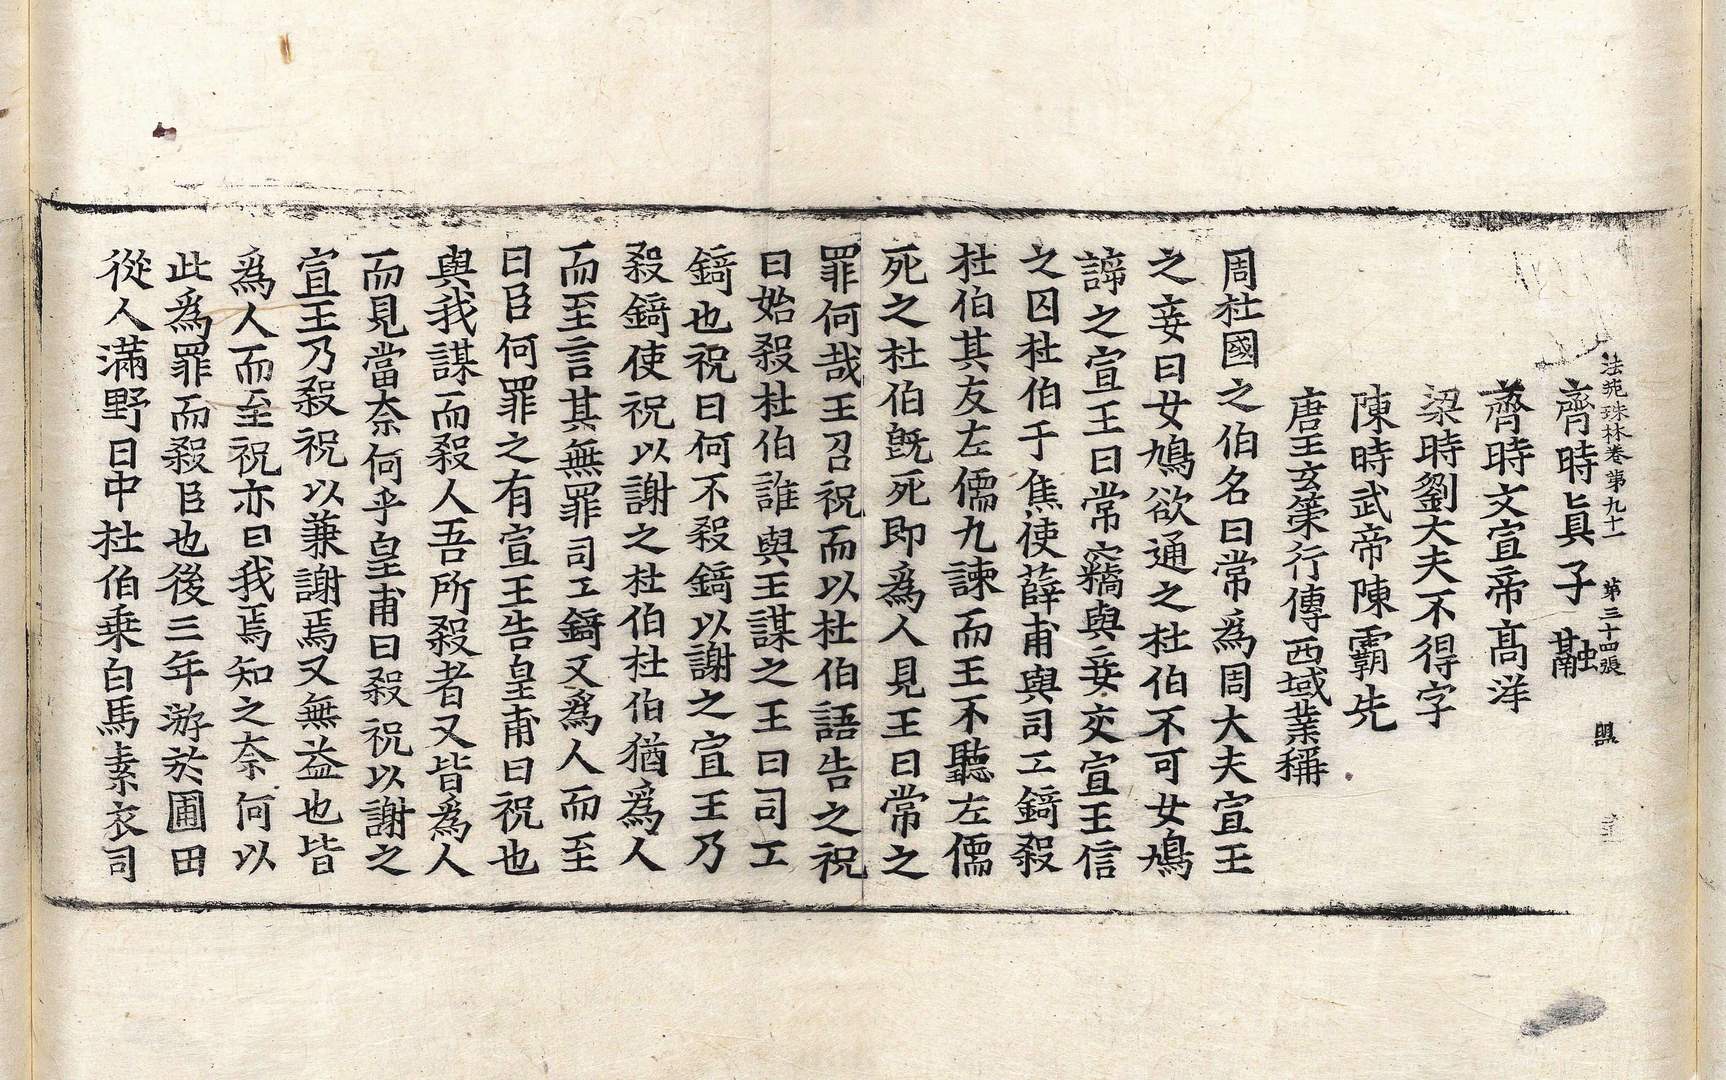 法苑珠林卷第九十一 第三十四張 盟
齊時真子融
齊時文宣帝高洋
梁時劉大夫不得字
陳時武帝陳霸先
唐王玄策行傳西域業稱
周杜國之伯名曰常為周大夫宣王
之妾曰女鳩欲通之杜伯不可女鳩
諦之宣王曰常竊與妾交宣王信
之囚杜伯于焦使薛甫與司工錡殺
杜伯其友左儒九諫而王不聽左儒
死之杜伯旣死即為人見王曰常之
罪何哉王召祝而以杜伯語告之祝
曰始殺杜伯誰與王謀之王曰司工
錡也祝曰何不殺錡以謝之宣王乃
殺錡使祝以謝之杜伯杜伯猶為人
而至言其無罪司工錡又為人而至
曰臣何罪之有宣王告皇甫曰祝也
與我謀而殺人吾所殺者又皆為人
而見當奈何乎皇甫曰殺祝以謝之
宣王乃殺祝以兼謝焉又無益也皆
為人而至祝亦曰我焉知之奈何以
此為罪而殺臣也後三年游於圃田
從人滿野日中杜伯乗白馬素衣司